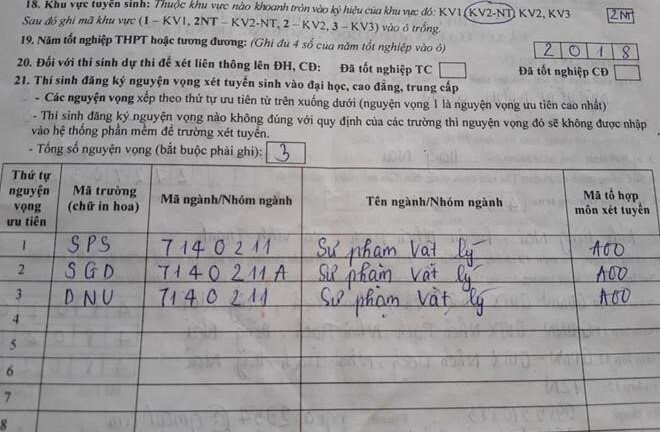 18. Khu vực tuyển sinh: Thuộc khu vực nào khoanh tròn vào ký hiệu của khu vực đó: KV1, KV2-NT, KV2, KV3 2NT
Sau đó ghi mã khu vực (1 – KV1, 2NT – KV2-NT, 2 – KV2, 3 – KV3) vào ô trống.
19. Năm tốt nghiệp THPT hoặc tương đương: (Ghi đủ 4 số của năm tốt nghiệp vào ô) 2 0 1 8
20. Đối với thí sinh dự thi để xét liên thông lên ĐH, CĐ: Đã tốt nghiệp TC Đã tốt nghiệp CĐ
21. Thí sinh đăng ký nguyện vọng xét tuyển sinh vào đại học, cao đẳng, trung cấp
- Các nguyện vọng xếp theo thứ tự ưu tiên từ trên xuống dưới (nguyện vọng 1 là nguyện vọng ưu tiên cao nhất)
- Thí sinh đăng ký nguyện vọng nào không đúng với quy định của các trường thì nguyện vọng đó sẽ không được nhập
vào hệ thống phần mềm để trường xét tuyển.
- Tổng số nguyện vọng (bắt buộc phải ghi): 3
Thứ tự nguyện vọng ưu tiên Mã trường (chữ in hoa) Mã ngành/Nhóm ngành Tên ngành/Nhóm ngành Mã tổ hợp môn xét tuyển
1 SPS 7140211 Sư phạm Vật lý A00
2 SGD 7140211A Sư phạm Vật lý A00
3 DNU 7140211 Sư phạm Vật lý A00
4
5
6
7
8